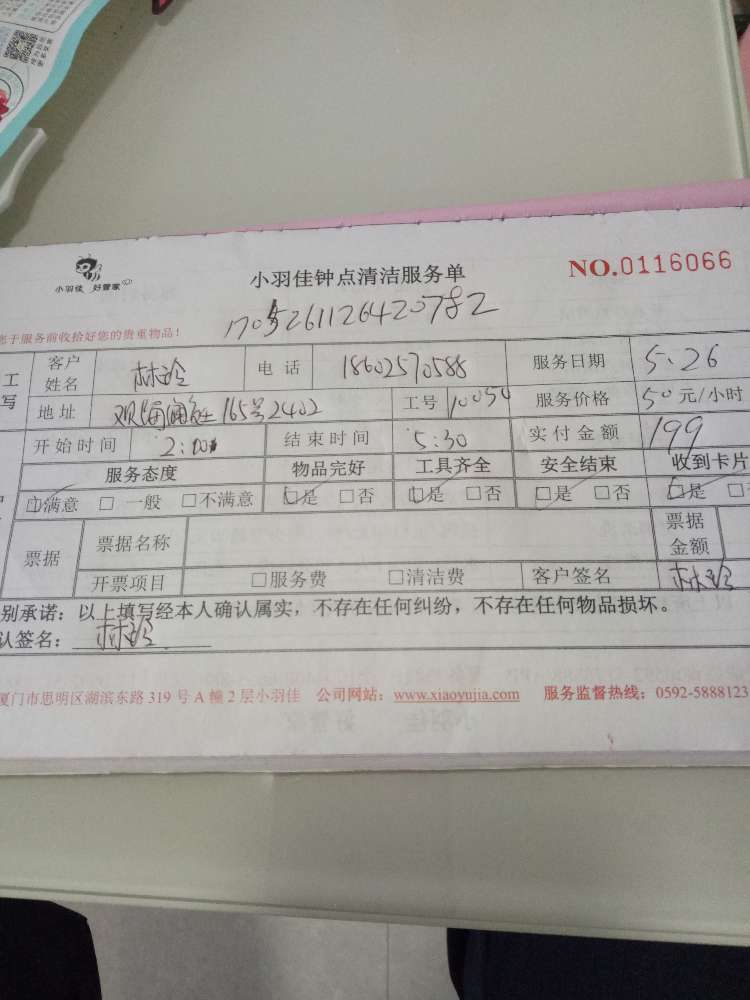 小羽佳 好管家
小羽佳钟点清洁服务单
NO.0116066
您于服务前收拾好您的贵重物品!
工
写
客户姓名 林玲 电话 18602570588 服务日期 5.26
地址 165号2402 工号 10050 服务价格 50元/小时
开始时间 2:00 结束时间 5:30 实付金额 199
服务态度 物品完好 工具齐全 安全结束 收到卡片
□满意 □一般 □不满意 □是 □否 □是 □否 □是 □否 □是
票据 票据名称 票据金额
开票项目 □服务费 □清洁费 客户签名 林玲
别承诺：以上填写经本人确认属实，不存在任何纠纷，不存在任何物品损坏。
认签名：林玲
厦门市思明区湖滨东路 319 号 A 幢 2 层小羽佳 公司网站：www.xiaoyujia.com 服务监督热线：0592-5888123